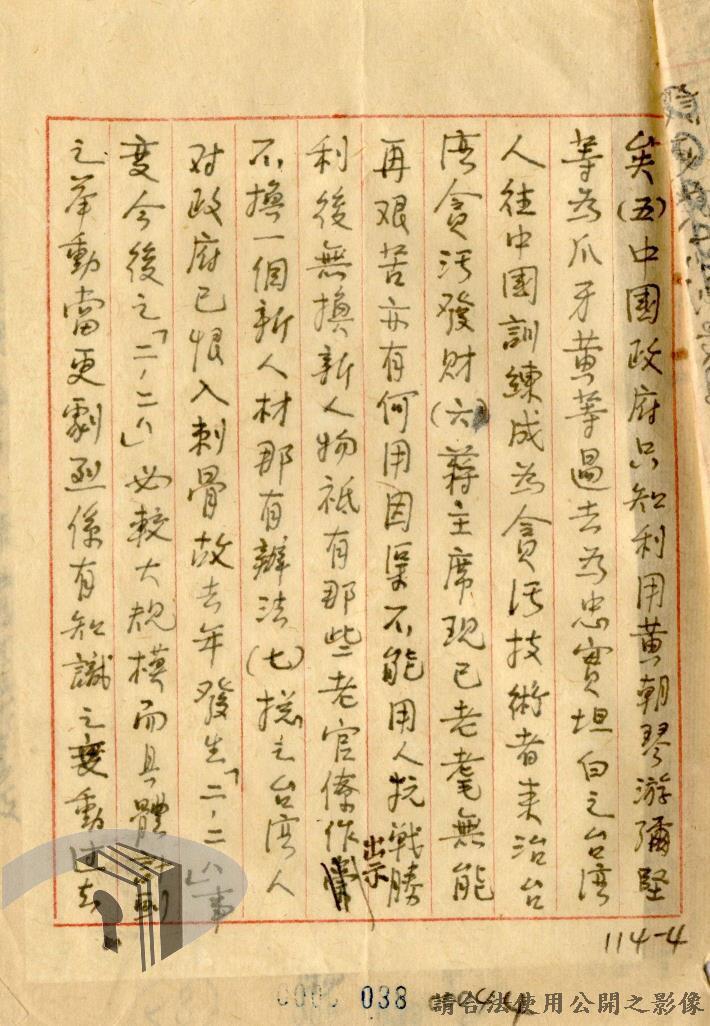 矣(五)中國政府只知利用黄朝琴游彌堅
等為爪牙黄等過去為忠實坦白之台湾
人往中國訓練成為貪污技術者来治台
湾貪污發财(六)蒋主席現已老耄無能
再艰苦亦有何用因渠不能用人抗戦勝
利後無換新人物祗有那些老官僚作
出示
不換一個新人材那有辦法(七)揔之台湾人
对政府已恨入刺骨故去年發生「二,二八」事
变今後之「二,二八」必較大規模而具體
之举動當更劇烈係有知識之変動过去
114-4
038
請合法使用公開之影像